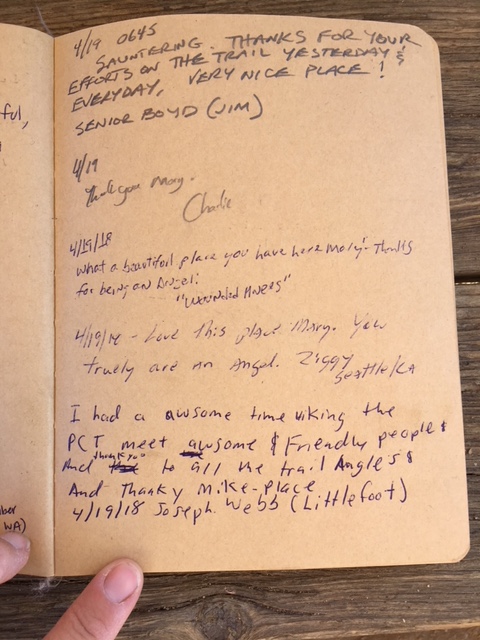 ful,
4/19 0645
SAUNTERING. THANKS FOR YOUR
EFFORTS ON THE TRAIL YESTERDAY &
EVERYDAY, VERY NICE PLACE!
SENIOR BOYD (JIM)
4/19
Thank you Mary.
Charlie
4/19/18
What a beautiful place you have here Mary! Thanks
for being an Angel!
"Wounded Knees"
4/19/18 - Love this place Mary. You
truely are an Angel. Ziggy
Seattle/CA
I had a awsome time viking the
PCT meet awsome & Friendly people &
And thank you to all the trail Angles &
And Thanky Mike-place
4/19/18 Joseph Webb (Littlefoot)
WA)